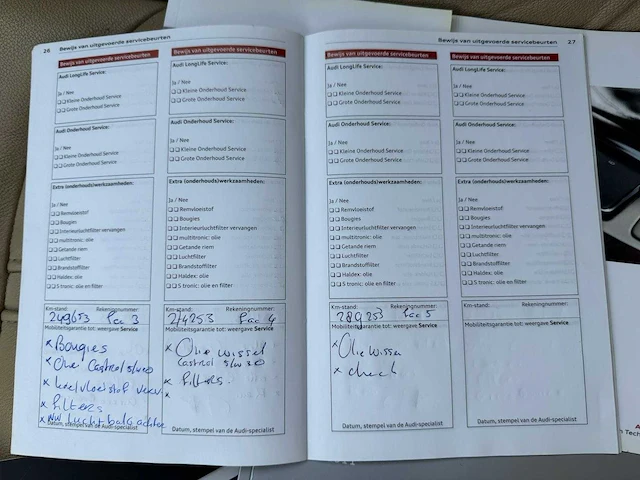 26 Bewijs van uitgevoerde servicebeurten
Bewijs van uitgevoerde servicebeurten
Audi LongLife Service:
Ja / Nee
Kleine Onderhoud Service
Grote Onderhoud Service
Audi Onderhoud Service:
Ja / Nee
Kleine Onderhoud Service
Grote Onderhoud Service
Extra (onderhouds)werkzaamheden:
Ja / Nee
Remvloeistof
Bougies
Interieurluchtfilter vervangen
multitronic: olie
Getande riem
Luchtfilter
Brandstoffilter
Haldex: olie
S tronic: olie en filter
Km-stand: Rekeningnummer:
249653 Fac 3
Mobiliteitsgarantie tot: weergave Service
x Bougies
x Olie Castrol 5/w30
x koelvloeistof verv.
x filters
x NW Luchtbalg achter
Datum, stempel van de Audi-specialist
Bewijs van uitgevoerde servicebeurten
Audi LongLife Service:
Ja / Nee
Kleine Onderhoud Service
Grote Onderhoud Service
Audi Onderhoud Service:
Ja / Nee
Kleine Onderhoud Service
Grote Onderhoud Service
Extra (onderhouds)werkzaamheden:
Ja / Nee
Remvloeistof
Bougies
Interieurluchtfilter vervangen
multitronic: olie
Getande riem
Luchtfilter
Brandstoffilter
Haldex: olie
S tronic: olie en filter
Km-stand: Rekeningnummer:
Fac 4
Mobiliteitsgarantie tot: weergave Service
x Olie wissel
Castrol 5/w30
x filters.
x
Datum, stempel van de Audi-specialist
Bewijs van uitgevoerde servicebeurten 27
Bewijs van uitgevoerde servicebeurten
Audi LongLife Service:
Ja / Nee
Kleine Onderhoud Service
Grote Onderhoud Service
Audi Onderhoud Service:
Ja / Nee
Kleine Onderhoud Service
Grote Onderhoud Service
Extra (onderhouds)werkzaamheden:
Ja / Nee
Remvloeistof
Bougies
Interieurluchtfilter vervangen
multitronic: olie
Getande riem
Luchtfilter
Brandstoffilter
Haldex: olie
S tronic: olie en filter
Km-stand: Rekeningnummer:
289253 Fac 5
Mobiliteitsgarantie tot: weergave Service
x Olie wissel
x check
Datum, stempel van de Audi-specialist
Bewijs van uitgevoerde servicebeurten
Audi LongLife Service:
Ja / Nee
Kleine Onderhoud Service
Grote Onderhoud Service
Audi Onderhoud Service:
Ja / Nee
Kleine Onderhoud Service
Grote Onderhoud Service
Extra (onderhouds)werkzaamheden:
Ja / Nee
Remvloeistof
Bougies
Interieurluchtfilter vervangen
multitronic: olie
Getande riem
Luchtfilter
Brandstoffilter
Haldex: olie
S tronic: olie en filter
Km-stand: Rekeningnummer:
Mobiliteitsgarantie tot: weergave Service
Datum, stempel van de Audi-specialist